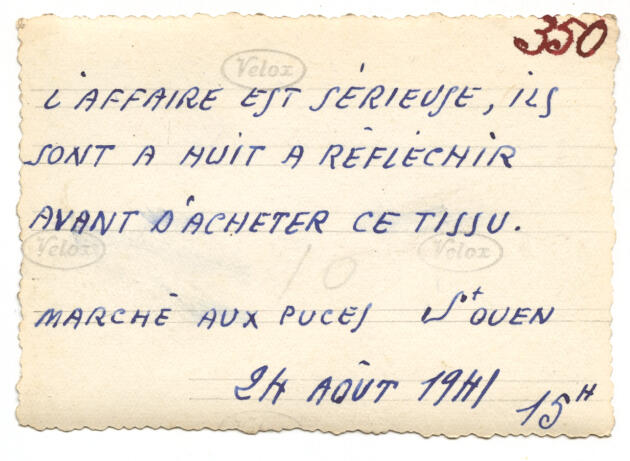 350
Velox
L'AFFAIRE EST SÉRIEUSE, ILS
SONT A HUIT A RÉFLÉCHIR
AVANT D'ACHETER CE TISSU.
Velox
Velox
10
MARCHÉ AUX PUCES St OUEN
24 AOÛT 1941 15H